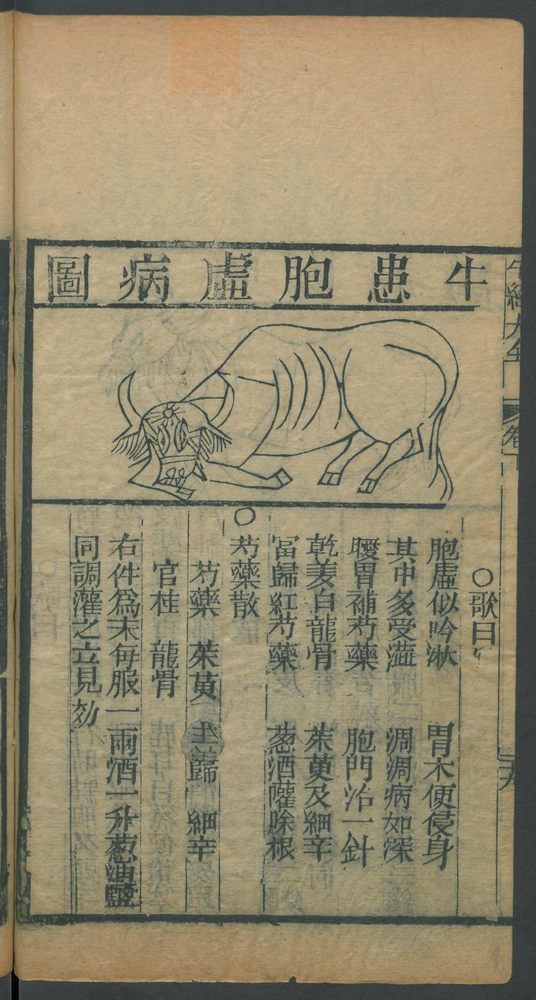 牛患胞虛病圖
○歌曰
胞虛似吟淋 胃木便侵身
其中多受澁 淍淍病如深
腰胃補芍藥 胞門治一針
乾姜白龍骨 茱萸及細辛
當歸紅芍藥 葱酒嚾除根
○芍藥散
芍藥 茱萸 歸 細辛
官桂 龍骨
右件為末每服一兩酒一升葱油鹽
同調灌之立見効
牛經大全 卷